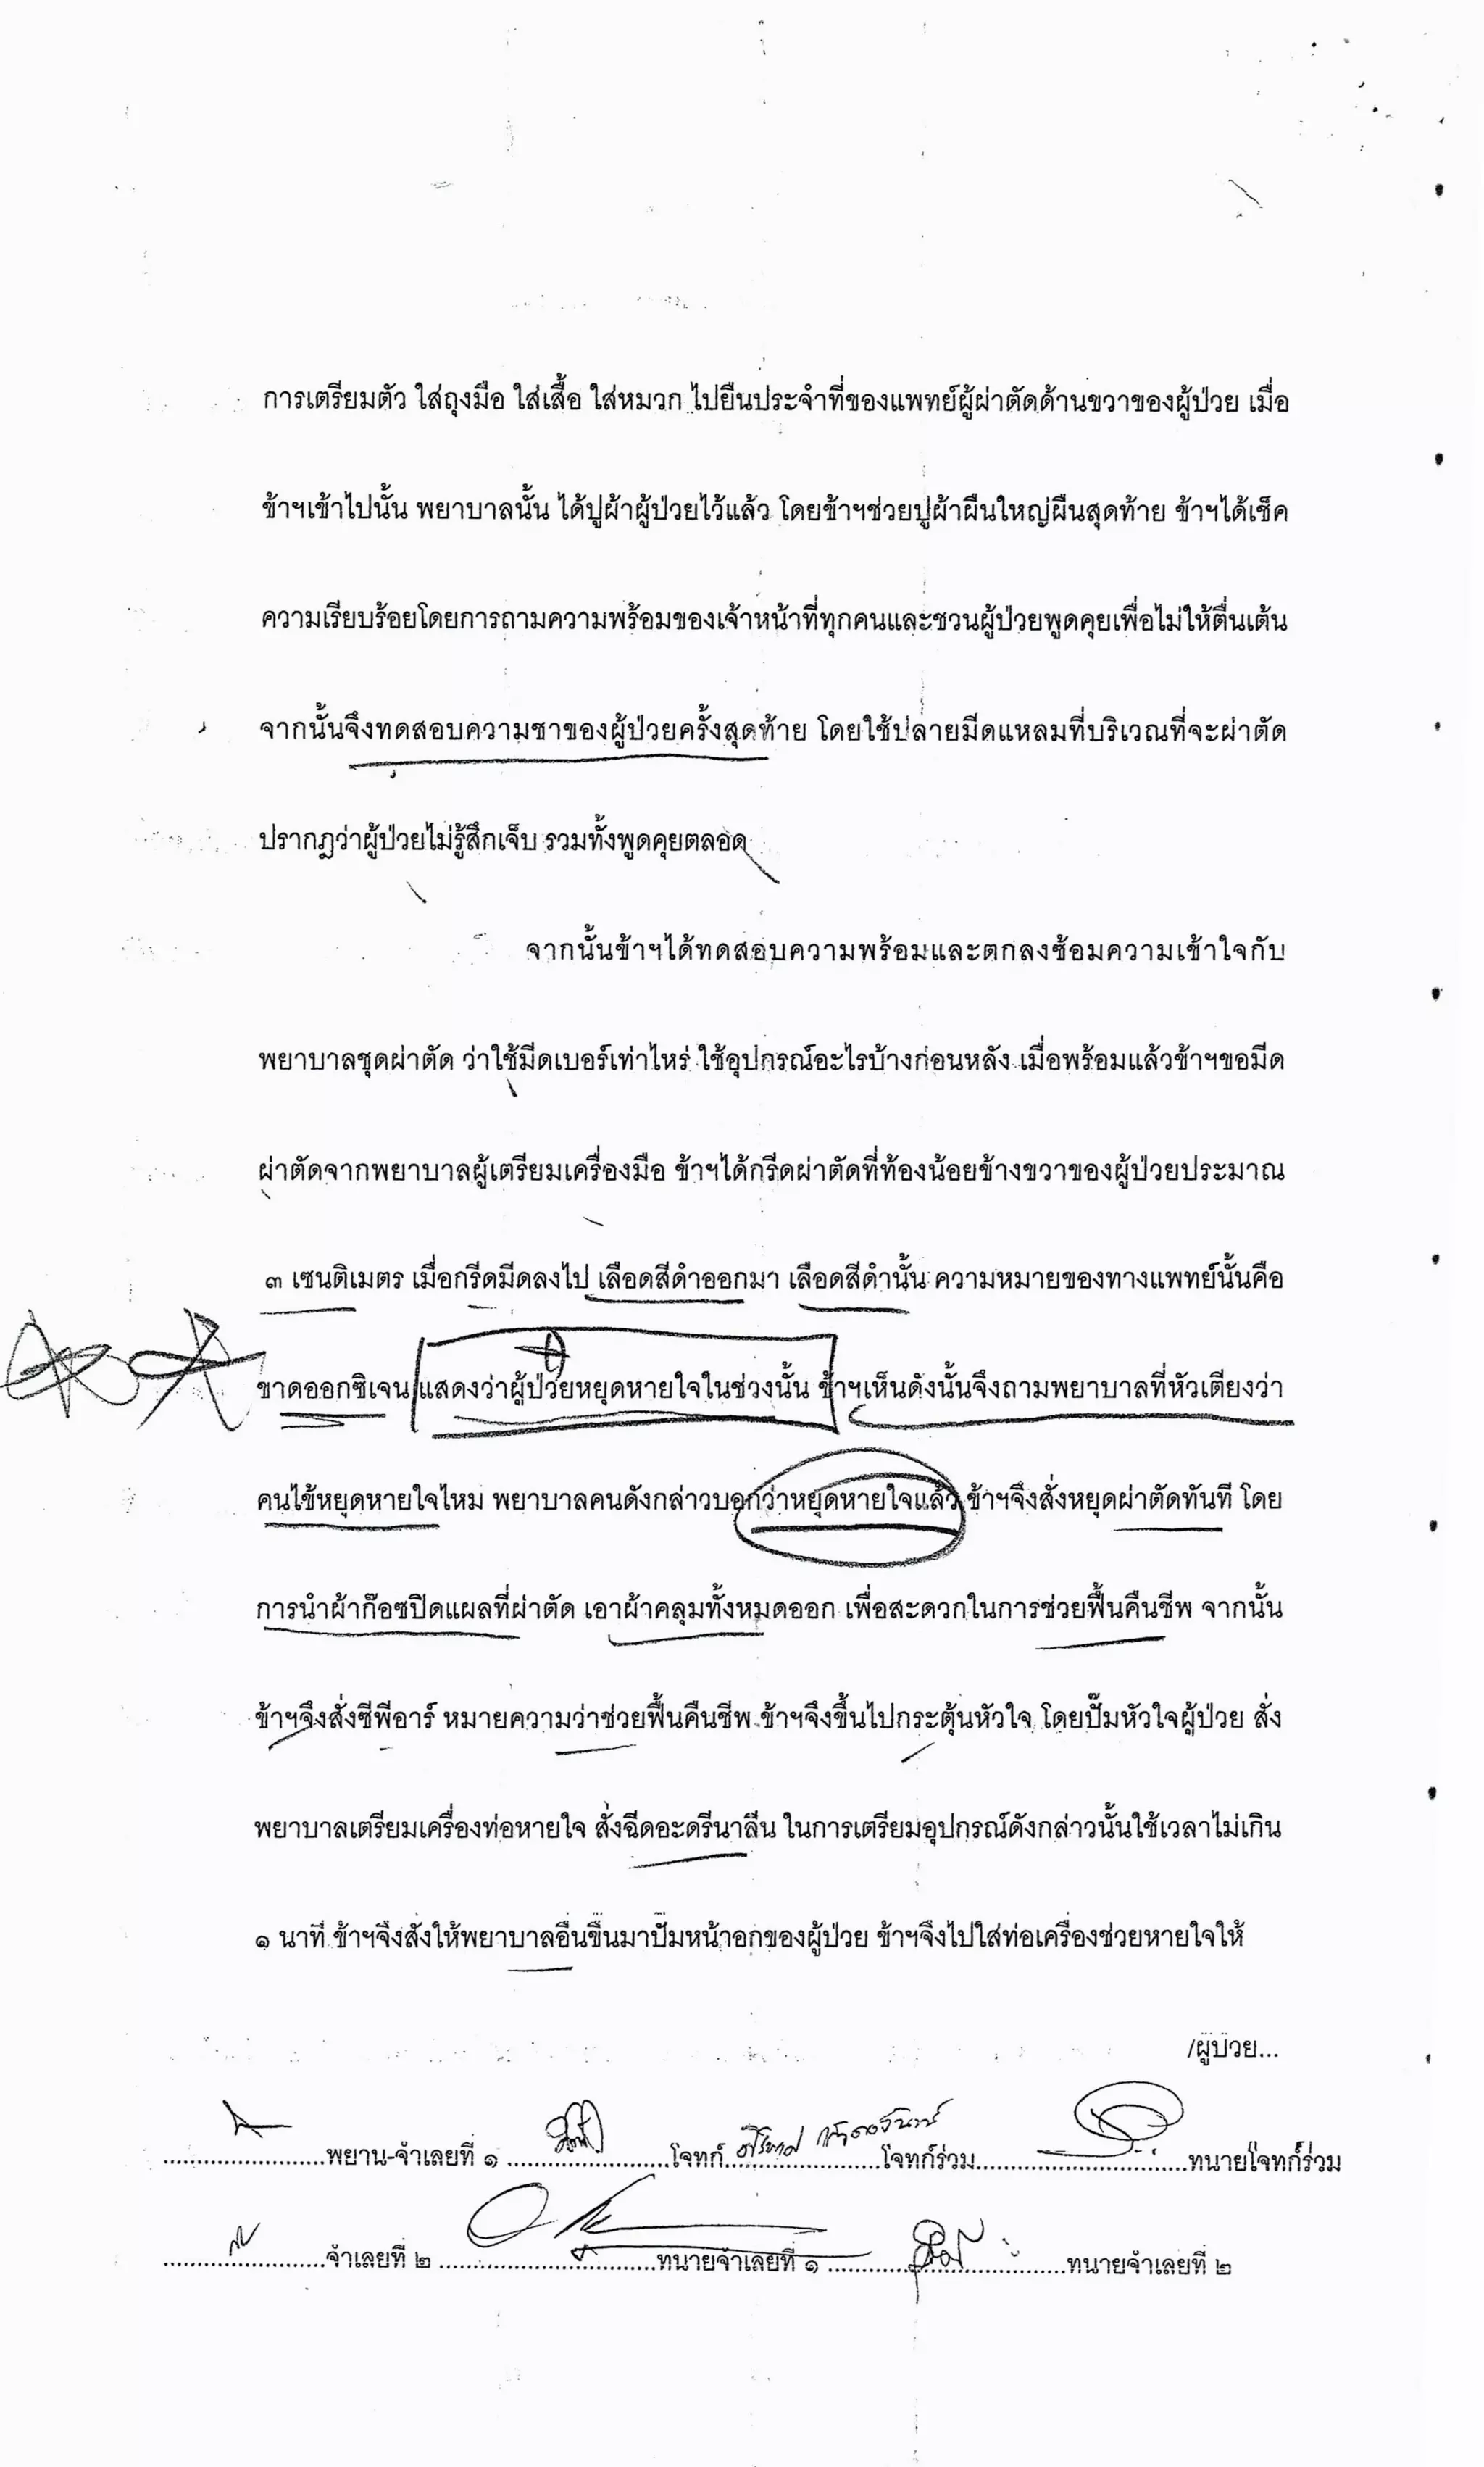 การเตรียมตัว ใส่ถุงมือ ใส่เสื้อ ใส่หมวก ไปยืนประจำที่ของแพทย์ผู้ผ่าตัดด้านขวาของผู้ป่วย เมื่อ
ข้าฯเข้าไปนั้น พยาบาลนั้น ได้ปูผ้าผู้ป่วยไว้แล้ว โดยข้าฯช่วยปูผ้าผืนใหญ่ผืนสุดท้าย ข้าฯได้เช็ค
ความเรียบร้อยโดยการถามความพร้อมของเจ้าหน้าที่ทุกคนและชวนผู้ป่วยพูดคุยเพื่อไม่ให้ตื่นเต้น
จากนั้นจึงทดสอบความชาของผู้ป่วยครั้งสุดท้าย โดยใช้ปลายมีดแหลมที่บริเวณที่จะผ่าตัด
ปรากฏว่าผู้ป่วยไม่รู้สึกเจ็บ รวมทั้งพูดคุยตลอด
จากนั้นข้าฯได้ทดสอบความพร้อมและตกลงซ้อมความเข้าใจกับ
พยาบาลชุดผ่าตัด ว่าใช้มีดเบอร์เท่าไหร่ ใช้อุปกรณ์อะไรบ้างก่อนหลัง เมื่อพร้อมแล้วข้าฯขอมีด
ผ่าตัดจากพยาบาลผู้เตรียมเครื่องมือ ข้าฯได้กรีดผ่าตัดที่ท้องน้อยข้างขวาของผู้ป่วยประมาณ
๓ เซนติเมตร เมื่อกรีดมีดลงไป เลือดสีดำออกมา เลือดสีดำนั้น ความหมายของทางแพทย์นั้นคือ
ขาดออกซิเจน แสดงว่าผู้ป่วยหยุดหายใจในช่วงนั้น ข้าฯเห็นดังนั้นจึงถามพยาบาลที่หัวเตียงว่า
คนไข้หยุดหายใจไหม พยาบาลคนดังกล่าวบอกว่าหยุดหายใจแล้ว ข้าฯจึงสั่งหยุดผ่าตัดทันที โดย
การนำผ้าก๊อซปิดแผลที่ผ่าตัด เอาผ้าคลุมทั้งหมดออก เพื่อสะดวกในการช่วยฟื้นคืนชีพ จากนั้น
ข้าฯจึงสั่งซีพีอาร์ หมายความว่าช่วยฟื้นคืนชีพ ข้าฯจึงขึ้นไปกระตุ้นหัวใจ โดยปั๊มหัวใจผู้ป่วย สั่ง
พยาบาลเตรียมเครื่องท่อหายใจ สั่งฉีดอะดรีนาลีน ในการเตรียมอุปกรณ์ดังกล่าวนั้นใช้เวลาไม่เกิน
๑ นาที ข้าฯจึงสั่งให้พยาบาลอื่นขึ้นมาปั๊มหน้าอกของผู้ป่วย ข้าฯจึงไปใส่ท่อเครื่องช่วยหายใจให้
/ผู้ป่วย...
........................พยาน-จำเลยที่ ๑ ........................โจทก์........................โจทก์ร่วม................................ทนายโจทก์ร่วม
........................จำเลยที่ ๒ ................................ทนายจำเลยที่ ๑ ....................................ทนายจำเลยที่ ๒